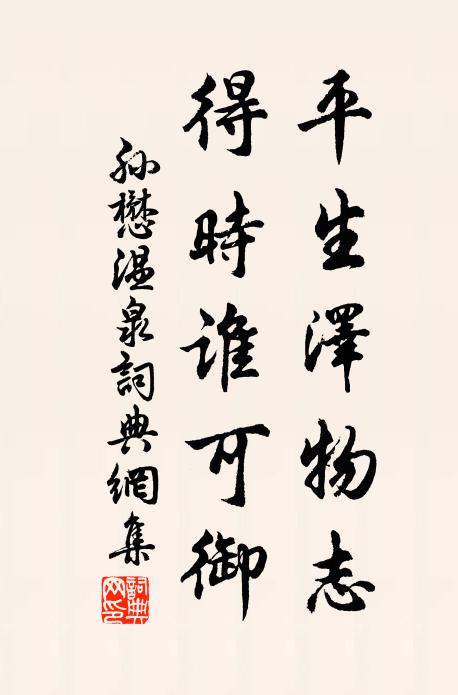 平生澤物志
得時誰可御
孫懋溫泉詞典網集
詞典网印